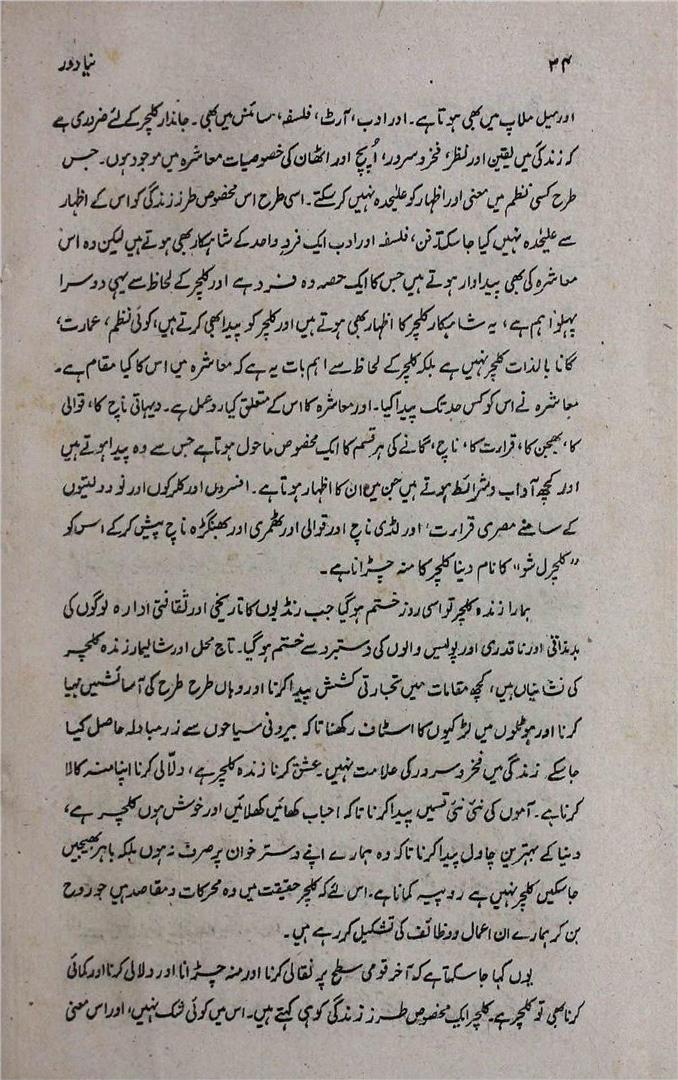 ۳۴ نیا دور
اور میل ملاپ میں بھی ہوتا ہے۔ اور ادب، آرٹ، فلسفہ، سائنس میں بھی۔ جاندار کلچر کے لئے ضروری ہے
کہ زندگی میں یقین اور نظر، فخر و سرور، اُپج اور اٹھان کی خصوصیات معاشرہ میں موجود ہوں۔ جس
طرح کسی نظم میں معنی اور اظہار کو علیحدہ نہیں کر سکتے۔ اسی طرح اس مخصوص طرز زندگی کو اس کے اظہار
سے علیحدہ نہیں کیا جا سکتا۔ فن، فلسفہ اور ادب ایک فردِ واحد کے شاہکار بھی ہوتے ہیں لیکن وہ اس
معاشرہ کی بھی پیداوار ہوتے ہیں جس کا ایک حصہ وہ فرد ہے اور کلچر کے لحاظ سے یہی دوسرا
پہلو اہم ہے، یہ شاہکار کلچر کا اظہار بھی ہوتے ہیں اور کلچر کو پیدا بھی کرتے ہیں، کوئی نظم، عمارت،
گانا بالذات کلچر نہیں ہے بلکہ کلچر کے لحاظ سے اہم بات یہ ہے کہ معاشرہ میں اس کا کیا مقام ہے۔
معاشرہ نے اس کو کس حد تک پیدا کیا۔ اور معاشرہ کا اس کے متعلق کیا ردعمل ہے۔ دیہاتی ناچ کا، قوالی
کا، بھجن کا، قرارت کا، ناچ، گانے کی ہر قسم کا ایک مخصوص ماحول ہوتا ہے جس سے وہ پیدا ہوتے ہیں
اور کچھ آداب و شرائط ہوتے ہیں جن میں ان کا اظہار ہوتا ہے۔ افسروں اور کلرکوں اور نو دولتیوں
کے سامنے مصری قرارت، اور لڈی ناچ اور قوالی اور ٹھمری اور بھنگڑہ ناچ پیش کر کے اس کو
”کلچرل شو“ کا نام دینا کلچر کا منہ چڑانا ہے۔
ہمارا زندہ کلچر تو اسی روز ختم ہو گیا جب رنڈیوں کا تاریخی اور ثقافتی ادارہ لوگوں کی
بدمذاقی اور ناقدری اور پولیس والوں کی دستبرد سے ختم ہو گیا۔ تاج محل اور شالیمار زندہ کلچر
کی نشانیاں ہیں، کچھ مقامات میں تجارتی کشش پیدا کرنا اور وہاں طرح طرح کی آسائشیں مہیا
کرنا اور ہوٹلوں میں لڑکیوں کا اسٹاف رکھنا تاکہ بیرونی سیاحوں سے زر مبادلہ حاصل کیا
جا سکے زندگی میں فخر و سرور کی علامت نہیں۔ عشق کرنا زندہ کلچر ہے، دلّالی کرنا اپنا منہ کالا
کرنا ہے۔ آموں کی نئی نئی قسمیں پیدا کرنا تاکہ احباب کھائیں کھلائیں اور خوش ہوں کلچر ہے،
دنیا کے بہترین چاول پیدا کرنا تاکہ وہ ہمارے اپنے دستر خوان پر صرف نہ ہوں بلکہ باہر بھیجیں
جا سکیں کلچر نہیں ہے روپیہ کمانا ہے۔ اس لئے کہ کلچر حقیقت میں وہ محرکات و مقاصد ہیں جو روح
بن کر ہمارے ان اعمال و وظائف کی تشکیل کر رہے ہیں۔
یوں کہا جا سکتا ہے کہ آخر قومی سطح پر نقالی کرنا اور منہ چڑانا اور دلالی کرنا اور کمائی
کرنا بھی تو کلچر ہے۔ کلچر ایک مخصوص طرز زندگی کو ہی کہتے ہیں۔ اس میں کوئی شک نہیں، اور اس معنی